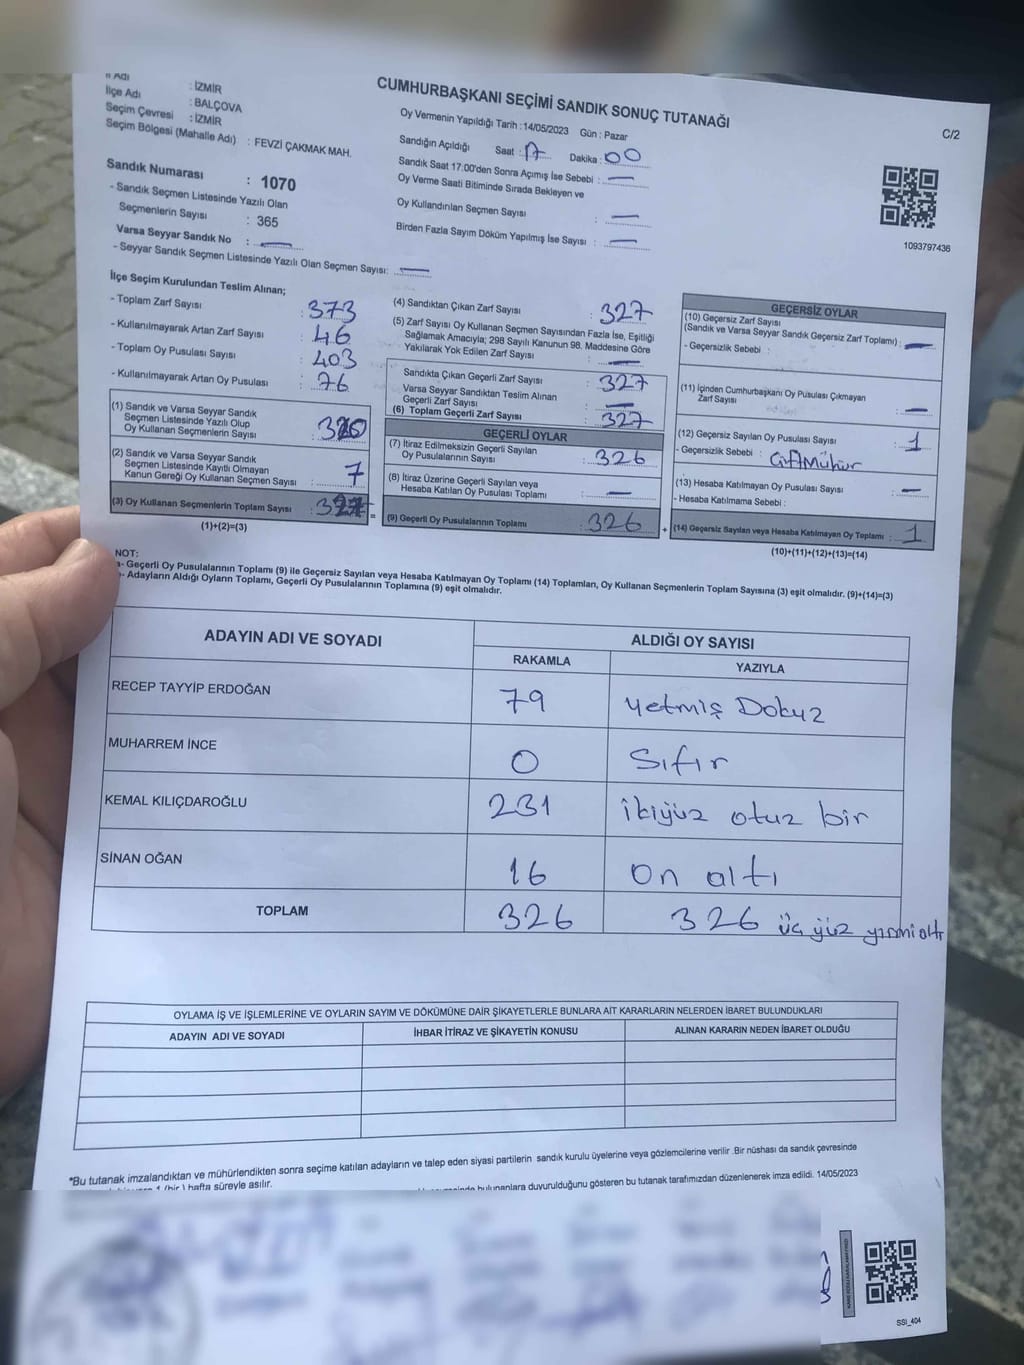 İl Adı : İZMİR
İlçe Adı : BALÇOVA
Seçim Çevresi : İZMİR
Seçim Bölgesi (Mahalle Adı) : FEVZİ ÇAKMAK MAH.
Sandık Numarası : 1070
- Sandık Seçmen Listesinde Yazılı Olan
Seçmenlerin Sayısı : 365
Varsa Seyyar Sandık No : —
- Seyyar Sandık Seçmen Listesinde Yazılı Olan Seçmen Sayısı: —
CUMHURBAŞKANI SEÇİMİ SANDIK SONUÇ TUTANAĞI
C/2
Oy Vermenin Yapıldığı Tarih :14/05/2023 Gün : Pazar
Sandığın Açıldığı Saat : 17 Dakika : 00
Sandık Saat 17:00'den Sonra Açımış İse Sebebi : —
Oy Verme Saati Bitiminde Sırada Bekleyen ve
Oy Kullandırılan Seçmen Sayısı : —
Birden Fazla Sayım Döküm Yapılmış İse Sayısı : —
1093797436
İlçe Seçim Kurulundan Teslim Alınan;
- Toplam Zarf Sayısı : 373
- Kullanılmayarak Artan Zarf Sayısı : 46
- Toplam Oy Pusulası Sayısı : 403
- Kullanılmayarak Artan Oy Pusulası : 76
(1) Sandık ve Varsa Seyyar Sandık
Seçmen Listesinde Yazılı Olup
Oy Kullanan Seçmenlerin Sayısı : 320
(2) Sandık ve Varsa Seyyar Sandık
Seçmen Listesinde Kayıtlı Olmayan
Kanun Gereği Oy Kullanan Seçmen Sayısı : 7
(3) Oy Kullanan Seçmenlerin Toplam Sayısı : 327 =
(1)+(2)=(3)
(4) Sandıktan Çıkan Zarf Sayısı : 327
(5) Zarf Sayısı Oy Kullanan Seçmen Sayısından Fazla İse, Eşitliği
Sağlamak Amacıyla; 298 Sayılı Kanunun 98. Maddesine Göre
Yakılarak Yok Edilen Zarf Sayısı : —
Sandıkta Çıkan Geçerli Zarf Sayısı : 327
Varsa Seyyar Sandıktan Teslim Alınan
Geçerli Zarf Sayısı : —
(6) Toplam Geçerli Zarf Sayısı : 327
GEÇERLİ OYLAR
(7) İtiraz Edilmeksizin Geçerli Sayılan
Oy Pusulalarının Sayısı : 326
(8) İtiraz Üzerine Geçerli Sayılan veya
Hesaba Katılan Oy Pusulası Toplamı : —
(9) Geçerli Oy Pusulalarının Toplamı : 326 +
GEÇERSİZ OYLAR
(10) Geçersiz Zarf Sayısı
(Sandık ve Varsa Seyyar Sandık Geçersiz Zarf Toplamı) : —
- Geçersizlik Sebebi :
(11) İçinden Cumhurbaşkanı Oy Pusulası Çıkmayan
Zarf Sayısı : —
(12) Geçersiz Sayılan Oy Pusulası Sayısı : 1
- Geçersizlik Sebebi : Çift Mühür
(13) Hesaba Katılmayan Oy Pusulası Sayısı : —
- Hesaba Katılmama Sebebi :
(14) Geçersiz Sayılan veya Hesaba Katılmayan Oy Toplamı : 1
(10)+(11)+(12)+(13)=(14)
NOT:
a- Geçerli Oy Pusulalarının Toplamı (9) ile Geçersiz Sayılan veya Hesaba Katılmayan Oy Toplamı (14) Toplamları, Oy Kullanan Seçmenlerin Toplam Sayısına (3) eşit olmalıdır. (9)+(14)=(3)
b- Adayların Aldığı Oyların Toplamı, Geçerli Oy Pusulalarının Toplamına (9) eşit olmalıdır.
ADAYIN ADI VE SOYADI ALDIĞI OY SAYISI
RAKAMLA YAZIYLA
RECEP TAYYİP ERDOĞAN 79 Yetmiş Dokuz
MUHARREM İNCE 0 Sıfır
KEMAL KILIÇDAROĞLU 231 ikiyüz otuz bir
SİNAN OĞAN 16 on altı
TOPLAM 326 326 üç yüz yirmi altı
OYLAMA İŞ VE İŞLEMLERİNE VE OYLARIN SAYIM VE DÖKÜMÜNE DAİR ŞİKAYETLERLE BUNLARA AİT KARARLARIN NELERDEN İBARET BULUNDUKLARI
ADAYIN ADI VE SOYADI İHBAR İTİRAZ VE ŞİKAYETİN KONUSU ALINAN KARARIN NEDEN İBARET OLDUĞU
*Bu tutanak imzalandıktan ve mühürlendikten sonra seçime katılan adayların ve talep eden siyasi partilerin sandık kurulu üyelerine veya gözlemcilerine verilir .Bir nüshası da sandık çevresinde
1 (bir ) hafta süreyle asılır.
bulunanlara duyurulduğunu gösteren bu tutanak tarafımızdan düzenlenerek imza edildi. 14/05/2023
SSI_404